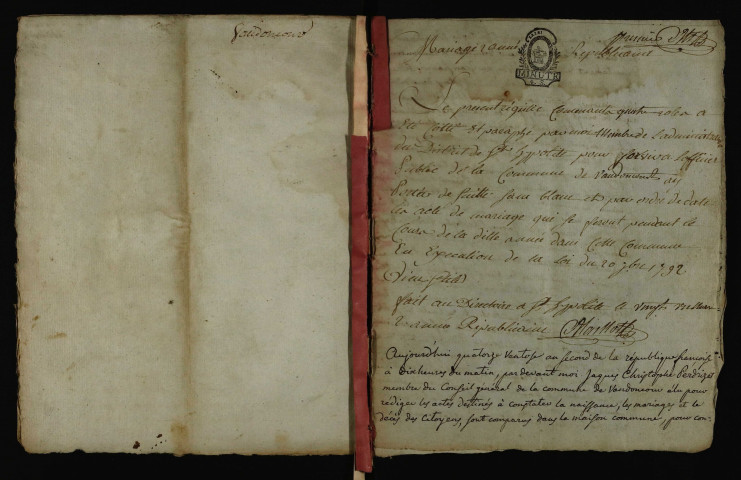 Vandoncourt
Mariage 2 année Républicaine
Le present régistre Contenant quatre rolles a
Eté Cotté Et paraphé par moi Membre de l'administration
du District de St Hypolite pour Servir a l'officier
Public de la Commune de Vandoncourt au
de Suitte Sans blanc et par ordre de datte
les acte de mariage qui se feront pendant le
Cours de la ditte année dans Cette Commune
En Execution de la Loi du 20 7bre 1792.
Vieux Stile
fait au Directoire a St Hypolite le vingt
2 année Républicaine
Aujourd'hui quatorze Ventose an second de la république françoise
à dix heures du matin, par devant moi Jaques Christophe Perdrizet
membre du Conseil général de la commune de Vandoncour élu pour
rédiger les actes destinés à constater la naissance, les mariages et le
décès des Citoyens, sont comparus dans la maison commune, pour con-